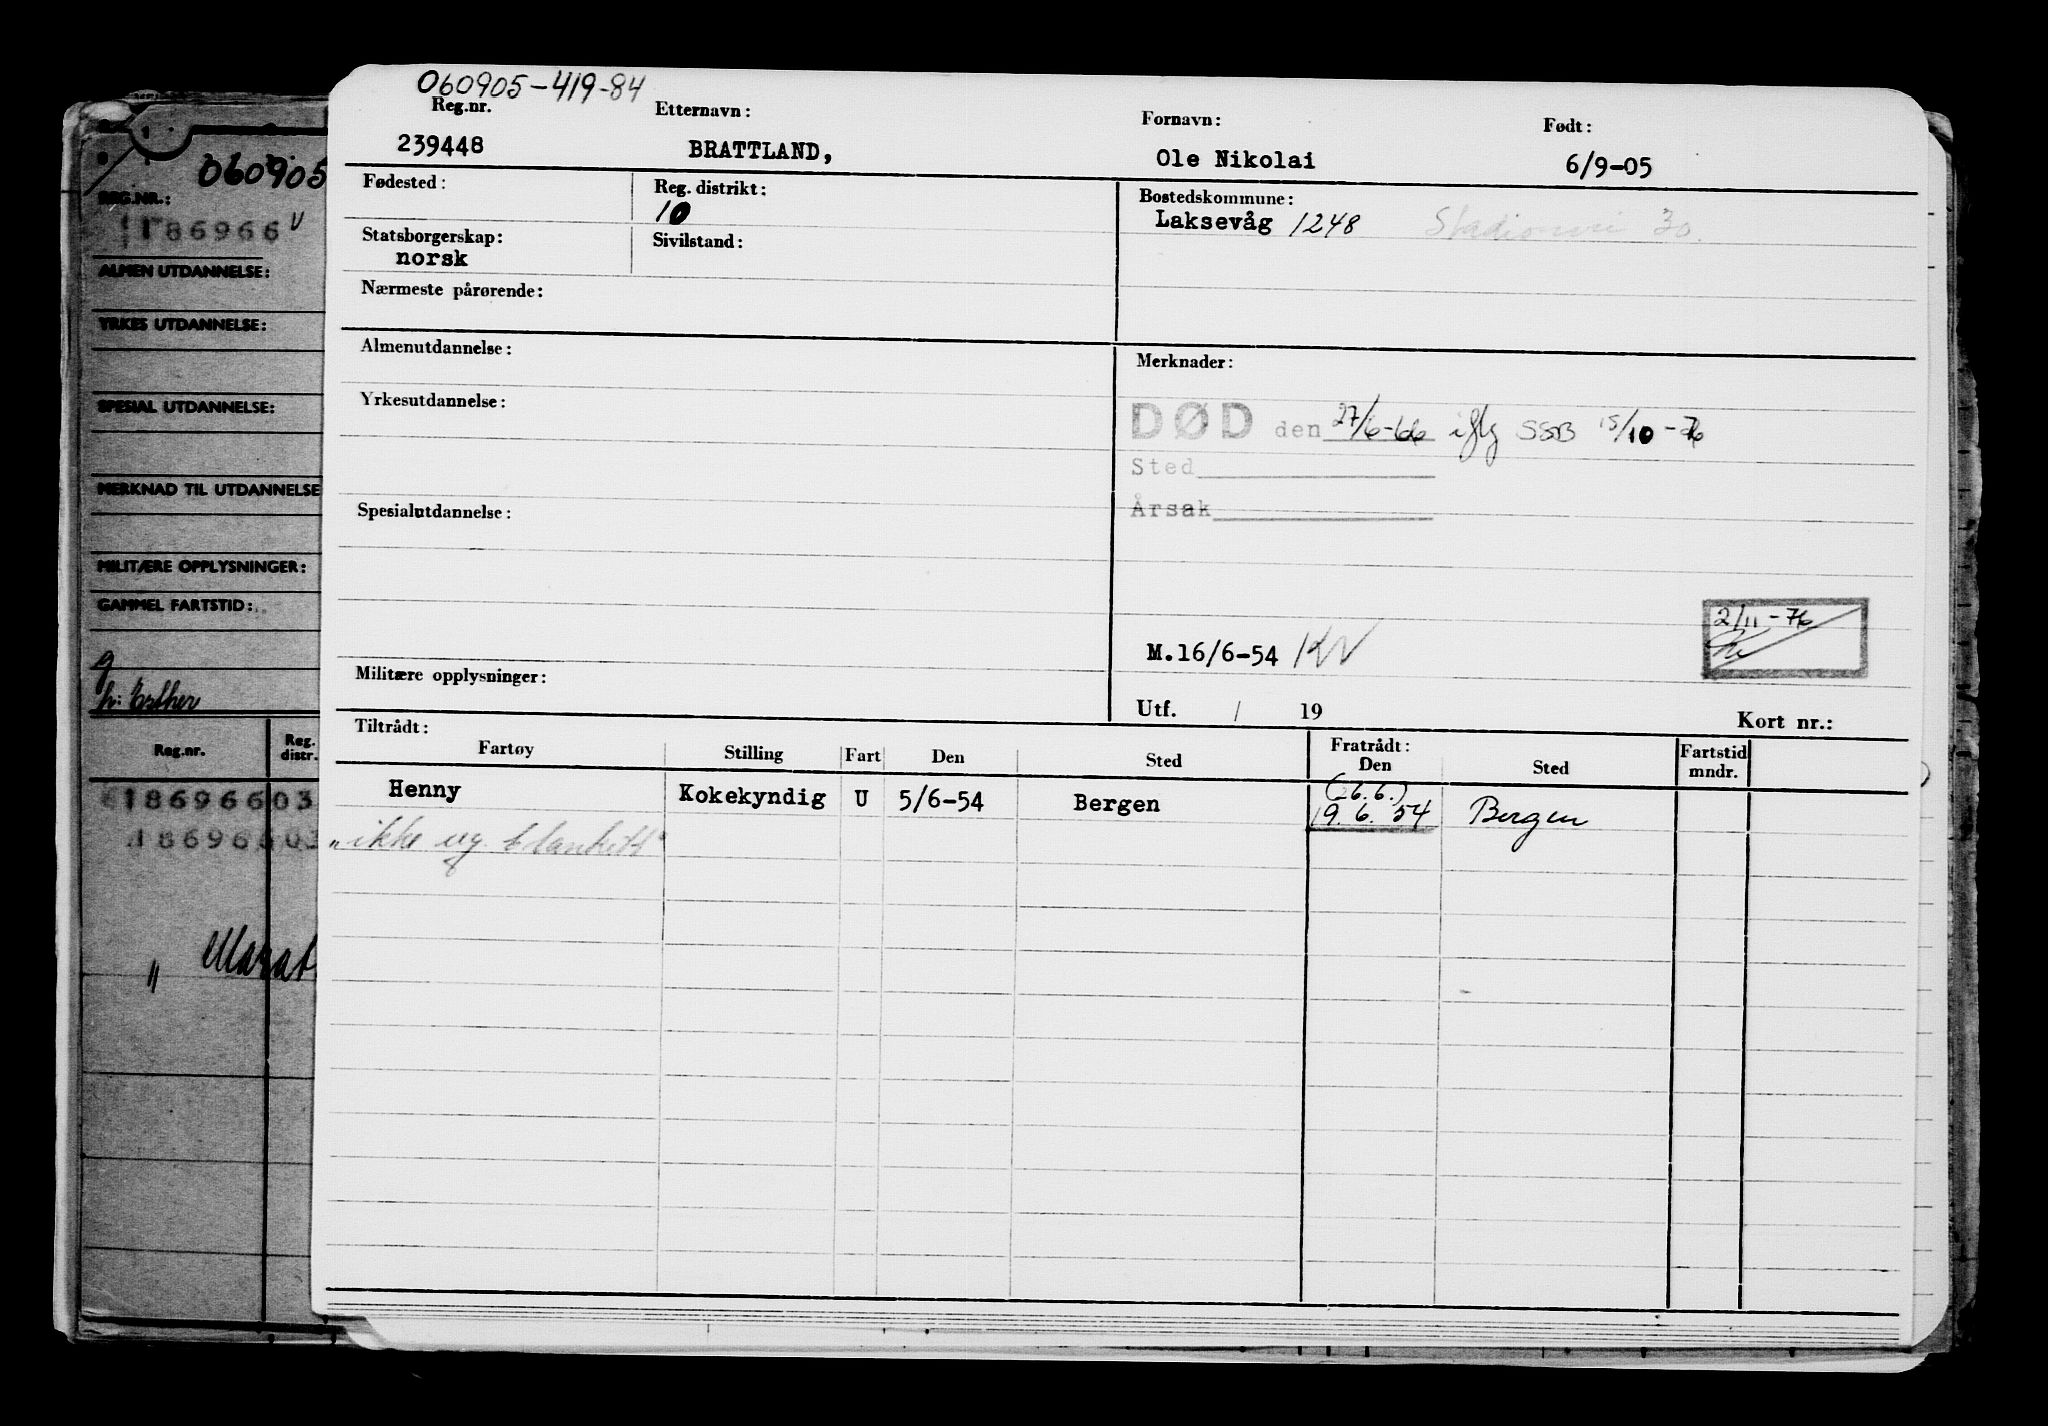 060905-419-84
Reg.nr. Etternavn: Fornavn: Født:
239448 BRATTLAND, Ole Nikolai 6/9-05
Fødested: Reg. distrikt: Bostedskommune:
10 Laksevåg 1248 30.
Statsborgerskap: Sivilstand:
norsk
Nærmeste pårørende:
Almenutdannelse: Merknader:
Yrkesutdannelse:
DØD den 27/6-66 iflg SSB 15/10-76
Sted
Spesialutdannelse: Årsak
2/11-76
M.16/6-54 KV
Militære opplysninger:
Utf. / 19 Kort nr.:
Tiltrådt: Fratrådt:
Fartøy Stilling Fart Den Sted Den Sted Fartstid mndr.
(26.6.)
Henny Kokekyndig U 5/6-54 Bergen 19.6.54 Bergen
"ikke og blankett"
060905
REG.NR.:
186966 v
ALMEN UTDANNELSE:
YRKES UTDANNELSE:
SPESIAL UTDANNELSE:
MERKNAD TIL UTDANNELSE
MILITÆRE OPPLYSNINGER:
GAMMEL FARTSTID:
g
h: Esther
Reg.nr. Reg. distr.
186966 03
186966 03
" Marat